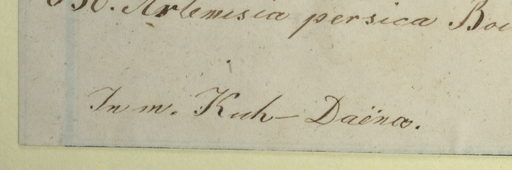 Artemisia persica Boi
In m. Kuh-Daëna.